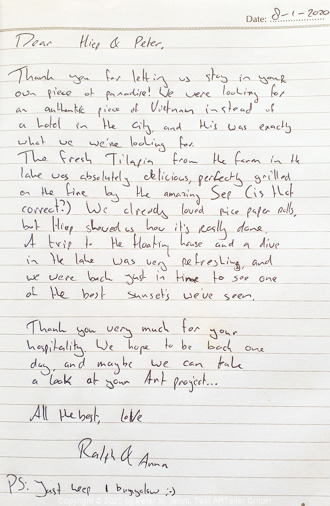 Date: 8-1-2020
Dear Hiep & Peter,
Thank you for letting us stay in your
own piece of paradise! We were looking for
an authentic piece of Vietnam instead of
a hotel in the city, and this was exactly
what we we're looking for.
The fresh Tilapia from the farm in the
lake was absolutely delicious, perfectly grilled
on the fire by the amazing Sep (is that
correct?) We already loved rice paper rolls,
but Hiep showed us how it's really done.
A trip to the floating house and a dive
in the lake was very refreshing, and
we were back just in time to see one
of the best sunsets we've seen.
Thank you very much for your
hospitality. We hope to be back one
day, and maybe we can take
a look at your Art project...
All the best, love
Ralph & Anna
PS: Just keep 1 bungalow ;-)